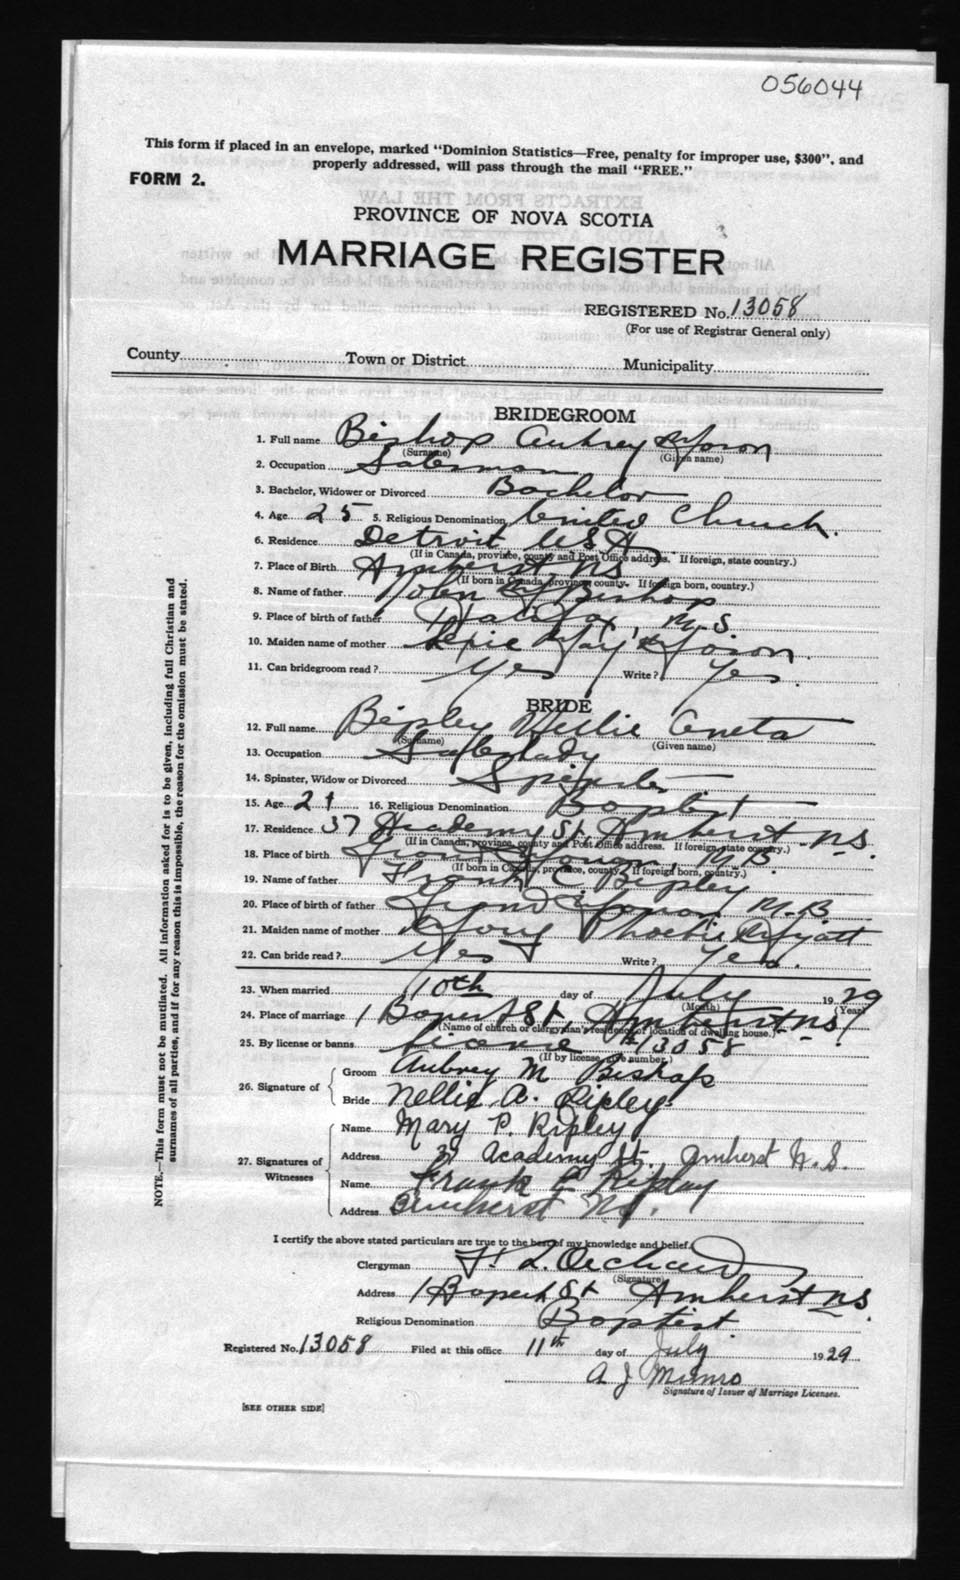 056044
This form if placed in an envelope, marked "Dominion Statistics—Free, penalty for improper use, $300", and
properly addressed, will pass through the mail "FREE."
FORM 2.
EXTRACTS FROM THE LAW
PROVINCE OF NOVA SCOTIA
MARRIAGE REGISTER
REGISTERED No. 13058
(For use of Registrar General only)
County Town or District Municipality
BRIDEGROOM
1. Full name Bishop Aubrey
(Surname) (Given name)
2. Occupation Salesman
3. Bachelor, Widower or Divorced Bachelor
4. Age 25 5. Religious Denomination United Church.
6. Residence Detroit USA
(If in Canada, province, county and Post Office address. If foreign, state country.)
7. Place of Birth Amherst NS
(If born in Canada, province, county. If foreign born, country.)
8. Name of father Bishop
9. Place of birth of father Halifax, N.S.
10. Maiden name of mother May
11. Can bridegroom read? Yes Write? Yes.
BRIDE
12. Full name Ripley Nellie
(Surname) (Given name)
13. Occupation Saleslady
14. Spinster, Widow or Divorced Spinster
15. Age 21 16. Religious Denomination Baptist
17. Residence 37 Academy St, Amherst NS.
(If in Canada, province, county and Post Office address. If foreign, state country.)
18. Place of birth N.B.
(If born in Canada, province, county. If foreign born, country.)
19. Name of father Frank C Ripley
20. Place of birth of father Grand N.B
21. Maiden name of mother Mary Phoebe
22. Can bride read? Yes Write? Yes.
23. When married 10th day of July 1929
(Month) (Year)
24. Place of marriage 1 Rupert St, Amherst NS
(Name of church or clergyman's residence or location of dwelling house.)
25. By license or banns License # 13058
(If by license, give number.)
26. Signature of { Groom Aubrey M Bishop
Bride Nellie A. Ripley
27. Signatures of Witnesses { Name Mary P. Ripley
Address 37 Academy St. Amherst N.S.
Name Frank C Ripley
Address Amherst NS.
I certify the above stated particulars are true to the best of my knowledge and belief.
Clergyman Orchard
(Signature)
Address 1 Rupert St Amherst NS.
Religious Denomination Baptist
Registered No. 13058 Filed at this office 11th day of July 1929
A J Munro
Signature of Issuer of Marriage Licenses.
[SEE OTHER SIDE]
NOTE.—This form must not be mutilated. All information asked for is to be given, including full Christian and
surnames of all parties, and if for any reason this is impossible, the reason for the omission must be stated.